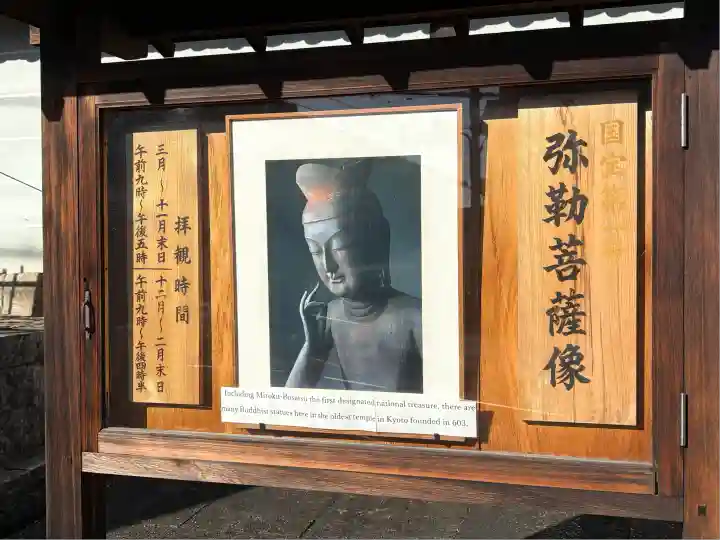 国宝第一号
弥勒菩薩像
拝観時間
三月～十一月末日 午前九時～午後五時
十二月～二月末日 午前九時～午後四時半
Including Miroku-Bosatsu the first designated national treasure, there are
many Buddhist statues here in the oldest temple in Kyoto founded in 603.